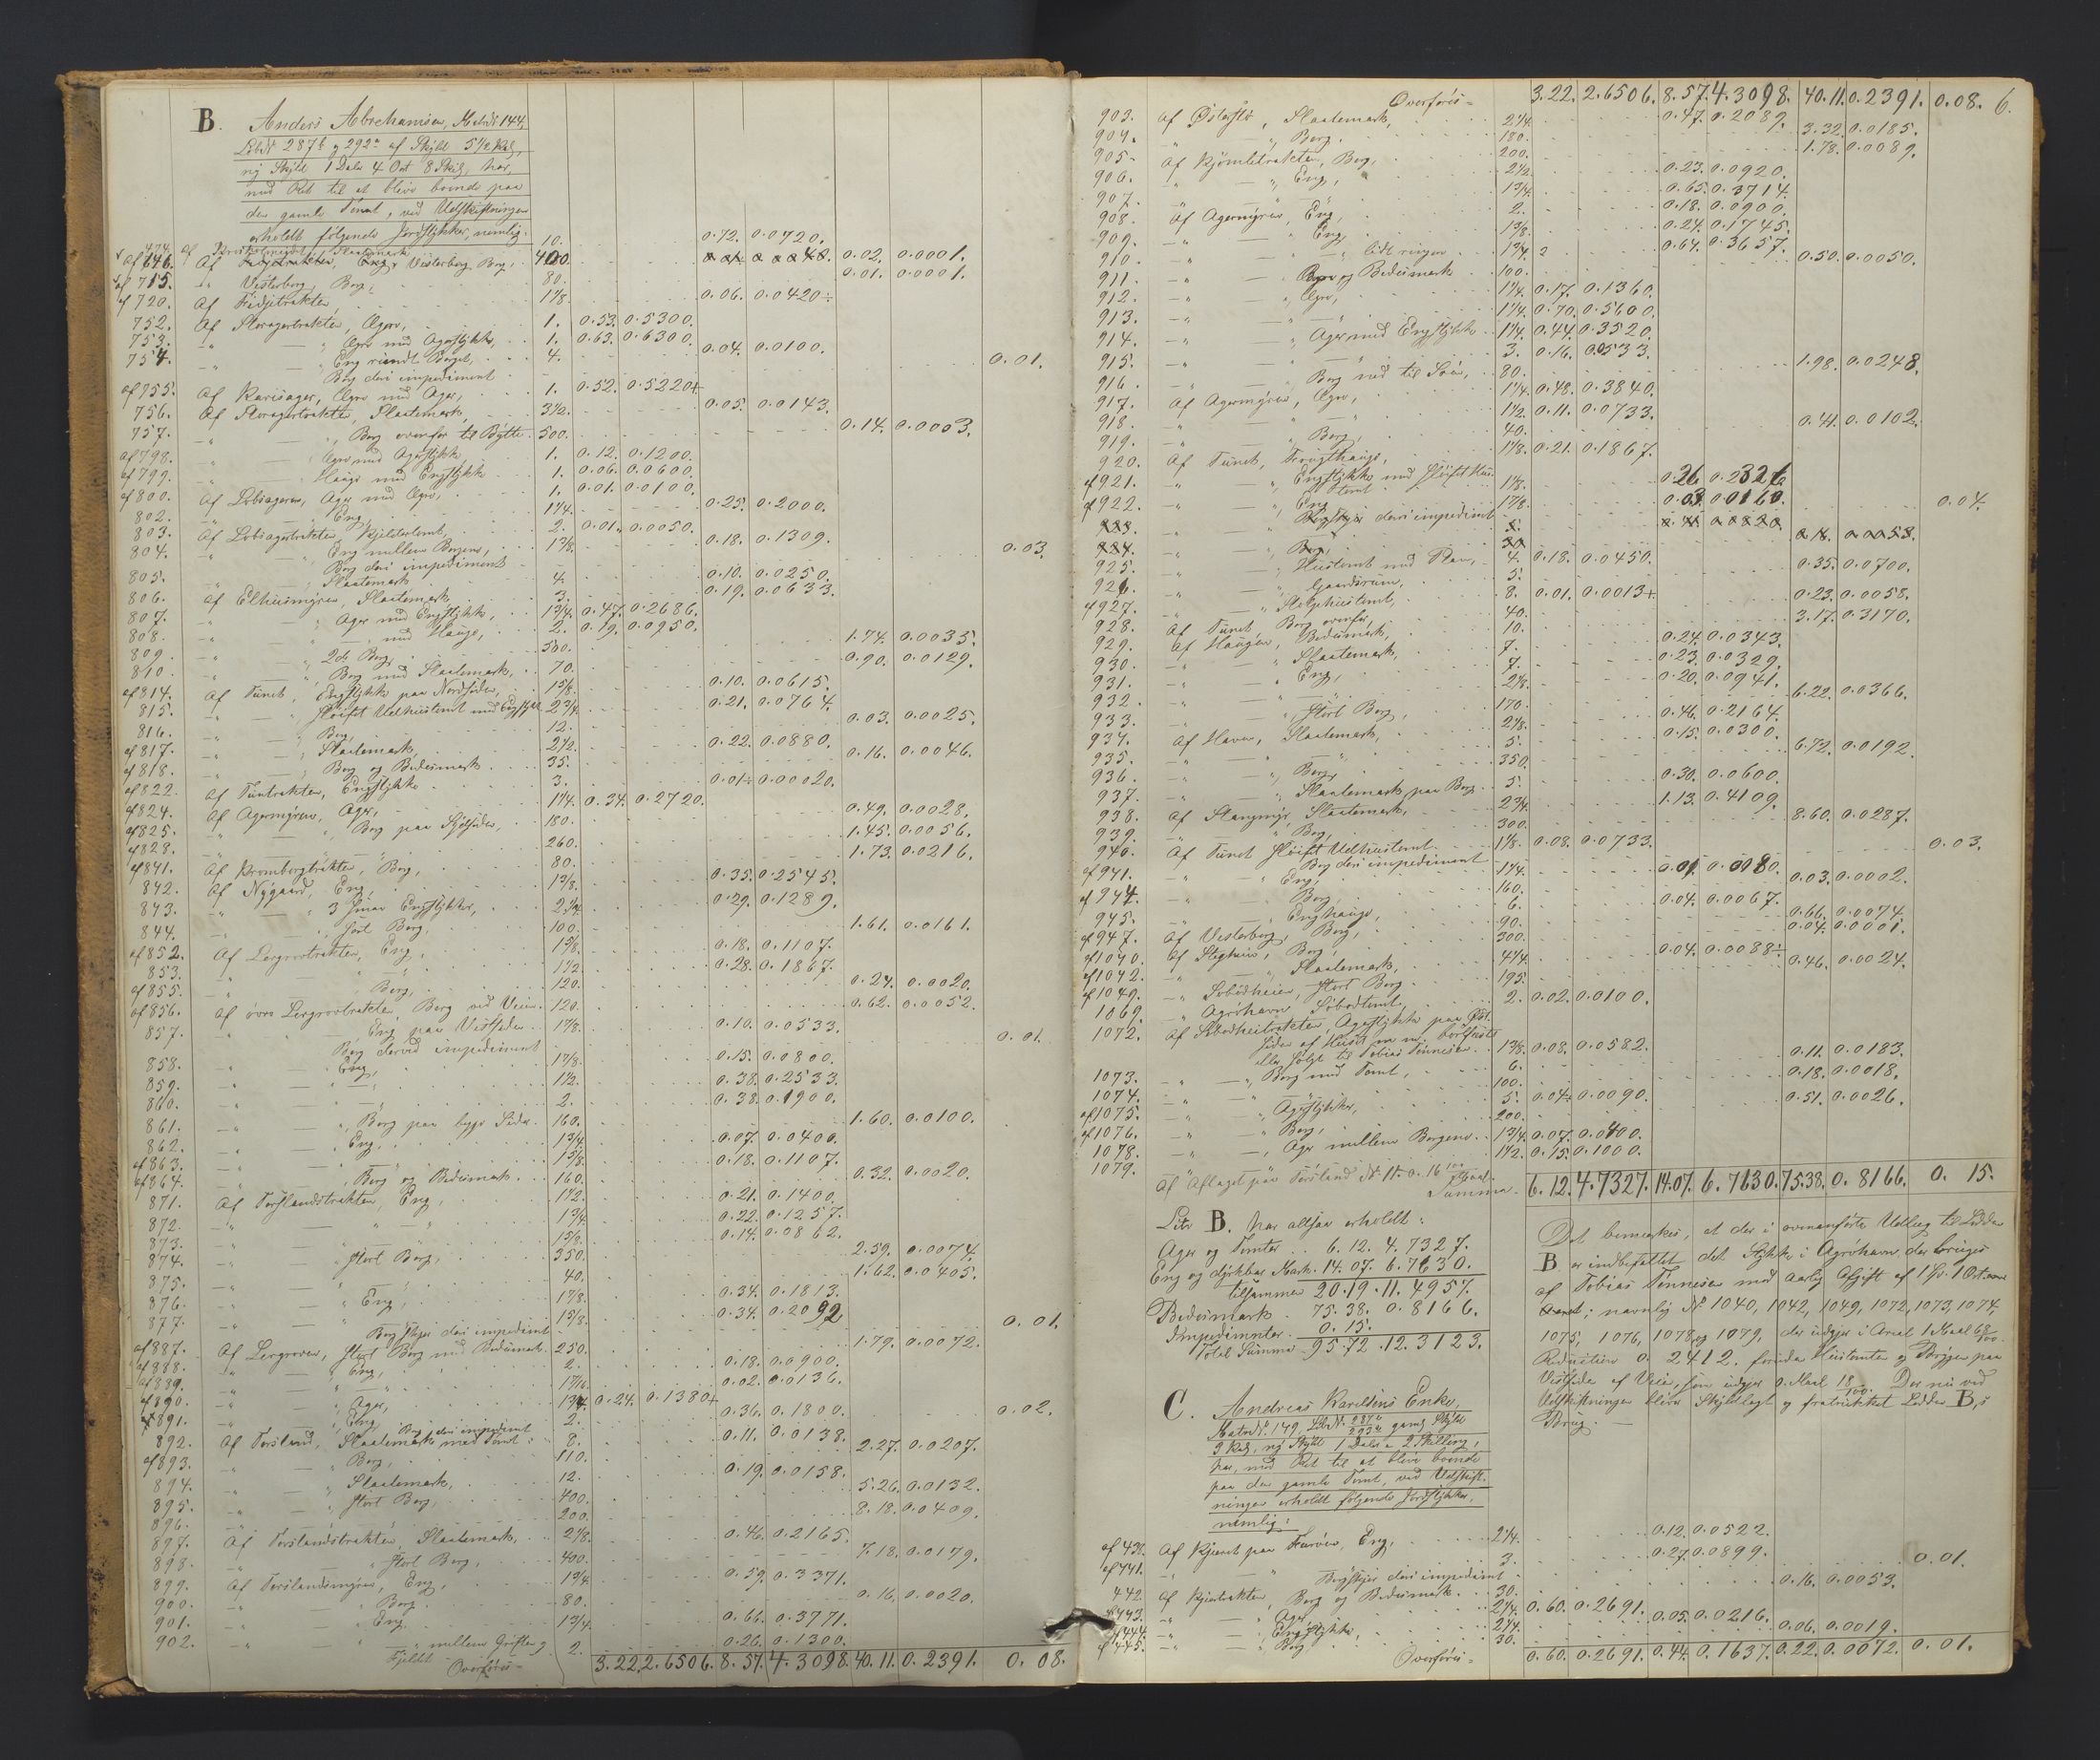 B. Anders Abrahamsen, Matr.№ 144,
Løb.№ 287b og 292a af Skyld 5½ Kal,
ny Skyld 1 Daler 4 Ort 8 Skil, har,
med Ret til at blive boende paa
den gamle Tomt, ved Udskiftningen
erholdt følgende Jordstykker, nemlig:
474. af Slaatemark, 10. 0.72. 0.0720.
af 646. Af Vesterberg Berg, 400. 0.02. 0.0001.
af 715. Vesterberg, Berg, 80. 0.01. 0.0001.
af 720. Af 1⅞. 0.06. 0.0420÷
752. Af Storagertrakten, Agre, 1. 0.53. 0.5300.
753. Agre med Agerstykke, 1. 0.63. 0.6300.
754. Eng rundt Berget, 4. 0.04. 0.0100.
Berg deri impediment 0.01.
af 755. Af Karisager, Agre med Ager, 1. 0.52. 0.5220+
756. Af Storagertrakten, Slaatemark, 3½. 0.05. 0.0143.
757. Berg ovenfor til Bytte. 500. 0.14. 0.0003.
af 798. Agre med Agerstykke, 1. 0.12. 0.1200.
af 799. Hauge med Engstykke 1. 0.06. 0.0600.
af 800. Af Lobsageren, Ager med Agre, 1. 0.01. 0.0100.
802. Eng, 1¼. 0.25. 0.2000.
803. Af Lobsagertrakten, 2. 0.01. 0.0050.
804. Eng mellem Bergene, 1⅜. 0.18. 0.1309.
Berg deri impediment 0.03.
805. Slaatemark 4. 0.10. 0.0250.
806. Af Elhusmyren, Slaatemark 3. 0.19. 0.0633.
807. Ager med Engstykke, 1¾. 0.47. 0.2686.
808. med Hauge, 2. 0.19. 0.0950.
809. 2de Berg, 500. 1.74. 0.0035.
810. Berg med Slaatemark, 70. 0.90. 0.0129.
af 814. Af Tunet, Engstykke paa Nordsiden, 1⅝. 0.10. 0.0615.
815. Sløift Udhustomt med Engstyk. 2¾. 0.21. 0.0764.
816. Berg, 12. 0.03. 0.0025.
af 817. Slaatemark, 2½. 0.22. 0.0880.
af 818. Berg og Bedesmark 35. 0.16. 0.0046.
af 822. Af Tuntrakten, Engstykke 3. 0.01÷ 0.00020.
af 824. Af Agermyren, Ager, 1¼. 0.34. 0.2720.
af 825. Berg paa Sydsiden, 180. 0.49. 0.0028.
af 828. 260. 1.45. 0.0056.
af 841. Af Kromborgtrakten, Berg, 80. 1.73. 0.0216.
842. Af Nygaard, Eng, 1⅜. 0.35. 0.2545.
843. 3 smaa Engstykker, 2¼. 0.29. 0.1289.
844. stort Berg, 100. 1.61. 0.0161.
af 852. Af Lergrovtrakten, Eng, 1⅝. 0.18. 0.1107.
853. 1½. 0.28. 0.1867.
af 855. Berg, 120. 0.24. 0.0020.
af 856. Af øvre Lergrovtrakten, Berg ved Veien. 120. 0.62. 0.0052.
857. Eng paa Vestsiden 1⅞. 0.10. 0.0533.
Berg derved impediment 0.01.
858. Eng, 1⅞. 0.15. 0.0800.
859. 1½. 0.38. 0.2533.
860. 2. 0.38. 0.1900.
861. Berg paa Siden. 160. 1.60. 0.0100.
862. Eng, 1¾. 0.07. 0.0400.
af 863. 1⅝. 0.18. 0.1107.
af 864. Berg og Bedesmark. 160. 0.32. 0.0020.
871. Af Torslandstrakten, Eng, 1½. 0.21. 0.1400.
872. 1¾. 0.22. 0.1257.
873. 1⅝. 0.14. 0.0862.
874. stort Berg, 350. 2.59. 0.0074.
875. 40. 1.62. 0.0405.
876. Eng, 1⅞. 0.34. 0.1813.
877. 1⅝. 0.34. 0.2092
Bergskjer deri impediment 0.01.
af 887. Af Lergroven, stort Berg med Bedesmark. 250. 1.79. 0.0072.
af 888. Eng, 2. 0.18. 0.0900.
af 889. 0.02. 0.0136.
af 890. Ager, 1¾. 0.24. 0.1380+
af 891. Eng 2. 0.36. 0.1800.
Berg deri impediment 0.02.
892. Af Torsland, Slaatemark med Tomt: 8. 0.11. 0.0138.
af 893. Berg, 110. 2.27. 0.0207.
894. Slaatemark, 12. 0.19. 0.0158.
895. stort Berg, 400. 5.26. 0.0132.
896. 200. 8.18. 0.0409.
897. Af Torslandstrakten, Slaatemark, 2⅛. 0.46. 0.2165.
898. stort Berg, 400. 7.18. 0.0179.
899. Af Torslandsmyren, Eng, 1¾. 0.59. 0.3371.
900. Berg. 80. 0.16. 0.0020.
901. Eng 1¾. 0.66. 0.3771.
902. mellem Grøften og Fjeldet 2. 0.26. 0.1300.
Overføres = 3.22. 2.6506. 8.57. 4.3098. 40.11. 0.2391. 0.08.
Overføres = 3.22. 2.6506. 8.57. 4.3098. 40.11. 0.2391. 0.08. 6.
903. Af Slaatemark, 2¼. 0.47. 0.2089.
904. Berg. 180. 3.32. 0.0185.
905. Af Berg, 200. 1.78. 0.0089.
906. Eng, 2½. 0.23. 0.0920.
907. 1¾. 0.65. 0.3714.
908. Af Agermyren, Eng, 2. 0.18. 0.0900.
909. Eng, 1⅜. 0.24. 0.1745.
910. lidt ringere 1¾. 0.64. 0.3657.
911. Berg og Bedesmark 100. 0.50. 0.0050.
912. Agre, 1¼. 0.17. 0.1360.
913. 1¼. 0.70. 0.5600.
914. Ager med Engstykke 1¼. 0.44. 0.3520.
915. 3. 0.16. 0.0533.
916. Berg ned til Søen, 80. 1.98. 0.0248.
917. Af Agermyren, Agre, 1¼. 0.48. 0.3840.
918. 1½. 0.11. 0.0733.
919. Berg, 40. 0.41. 0.0102.
920. Af Tunet, Frugthauge, 1⅛. 0.21. 0.1867.
af 921. Engstykke med sløift Hus-
tomt 1⅛. 0.26 0.2326
af 922. Eng 1⅞. 0.03 0.0160.
Bergskjer deri impediment 0.04.
923.
924. Berg,
925. Hustomt med Plan, 4. 0.18. 0.0450.
926. Gaardsrum, 5. 0.35. 0.0700.
af 927. Stolpehustomt, 8. 0.01. 0.0013+
928. Af Tunet Berg ovenfor, 40. 0.23. 0.0058.
929. Af Haugen, Bedesmark, 10. 3.17. 0.3170.
930. Slaatemark, 7. 0.24. 0.0343.
931. Eng, 7. 0.23. 0.0329.
932. 2⅛. 0.20. 0.0941.
933. stort Berg, 170. 6.22. 0.0366.
934. Af Haven, Slaatemark, 2⅛. 0.46. 0.2164.
935. 5. 0.15. 0.0300.
936. Berg, 350. 6.72. 0.0192.
937. Slaatemark paa Berg. 5. 0.30. 0.0600.
938. Af Slangmyr, Slaatemark, 2¾. 1.13. 0.4109.
939. Berg, 300. 8.60. 0.0287.
940. Af Tunet sløift Udhustomt. 1⅛. 0.08. 0.0733.
Berg deri impediment 0.03.
af 941. Eng, 1¼. 0.01 0.0080.
af 944. Berg, 160. 0.03. 0.0002.
945. Enghauge, 6. 0.04. 0.0067.
af 947. Af Vesterberg, Berg, 90. 0.66. 0.0074.
af 1040. Af Stighus, Berg, 300. 0.04. 0.0001.
af 1042. Slaatemark, 4¼. 0.04. 0.0088÷
af 1049. stort Berg 195. 0.46. 0.0024.
1069. Agrøhavn Søbodtomt, 2. 0.02. 0.0100.
1072. Af Agerstykke paa Øst-
siden af Huset m. m. bortfæstet
eller solgt til Tobias Tønnesen. 1⅜. 0.08. 0.0582.
1073. Berg med Tomt, 6. 0.11. 0.0183.
1074. 100. 0.18. 0.0018.
af 1075. Agerstykker, 5. 0.04÷ 0.0090.
af 1076. Berg, 200. 0.51. 0.0026.
1078. Ager mellem Bergene. 1¾. 0.07. 0.0400.
1079. 1½. 0.15. 0.1000.
Af Aflaget paa Torsland
Summa. 6.12. 4.7327. 14.07. 6.7630. 75.38. 0.8166. 0. 15.
Litr B. har altsaa erholdt:
Ager og Tomter .. 6. 12. 4. 7327.
Eng og dyrkbar Mark. 14. 07. 6. 7630.
tilsammen 20. 19. 11. 4957.
Bedesmark. 75. 38. 0. 8166.
Impedimenter. 0. 15.
Total Summa 95.72. 12. 3123.
Det bemærkes, at der i ovenanførte Udlæg til Lodden
B er indbefattet det Stykke i Agrøhavn der bruges
af Tobias Tønnesen mod aarlig Afgift af 1 Sp. 1 Ort
; navnlig № 1040, 1042, 1049, 1072, 1073, 1074,
1075, 1076, 1078 og 1079, der udgjør i Areal 1 Maal 68/100.
Reduction 0. 2412. foruden Hustomten og Bryggen paa
Vestside af Veien, som udgjør 0 Maal 18/100. Der nu ved
Udskiftningen bliver skyldlagt og fratrukket Lodden B's
Brug. —
C. Andreas Enke,
Matr.№ 149, Løb.№ gaml Skyld
9 Kal, ny Skyld 1 Daler 2 Skilling,
har, med Ret til at blive boende
paa den gamle Tomt, ved Udskift-
ningen erholdt følgende Jordstykker,
nemlig:
af 438. Af Kjæret paa Eng, 2¼. 0.12. 0.0522.
af 441. 3. 0.27. 0.0899.
Bergskjer deri impediment 0.01.
442. Af Berg og Bedesmark 30. 0.16. 0.0053.
af 443. Ager 2¼. 0.60. 0.2691.
af 444. Engstykke, 2¼. 0.05. 0.0216.
af 445. Berg 30. 0.06. 0.0019.
Overføres = 0.60. 0.2691. 0.44. 0.1637. 0.22. 0.0072. 0.01.